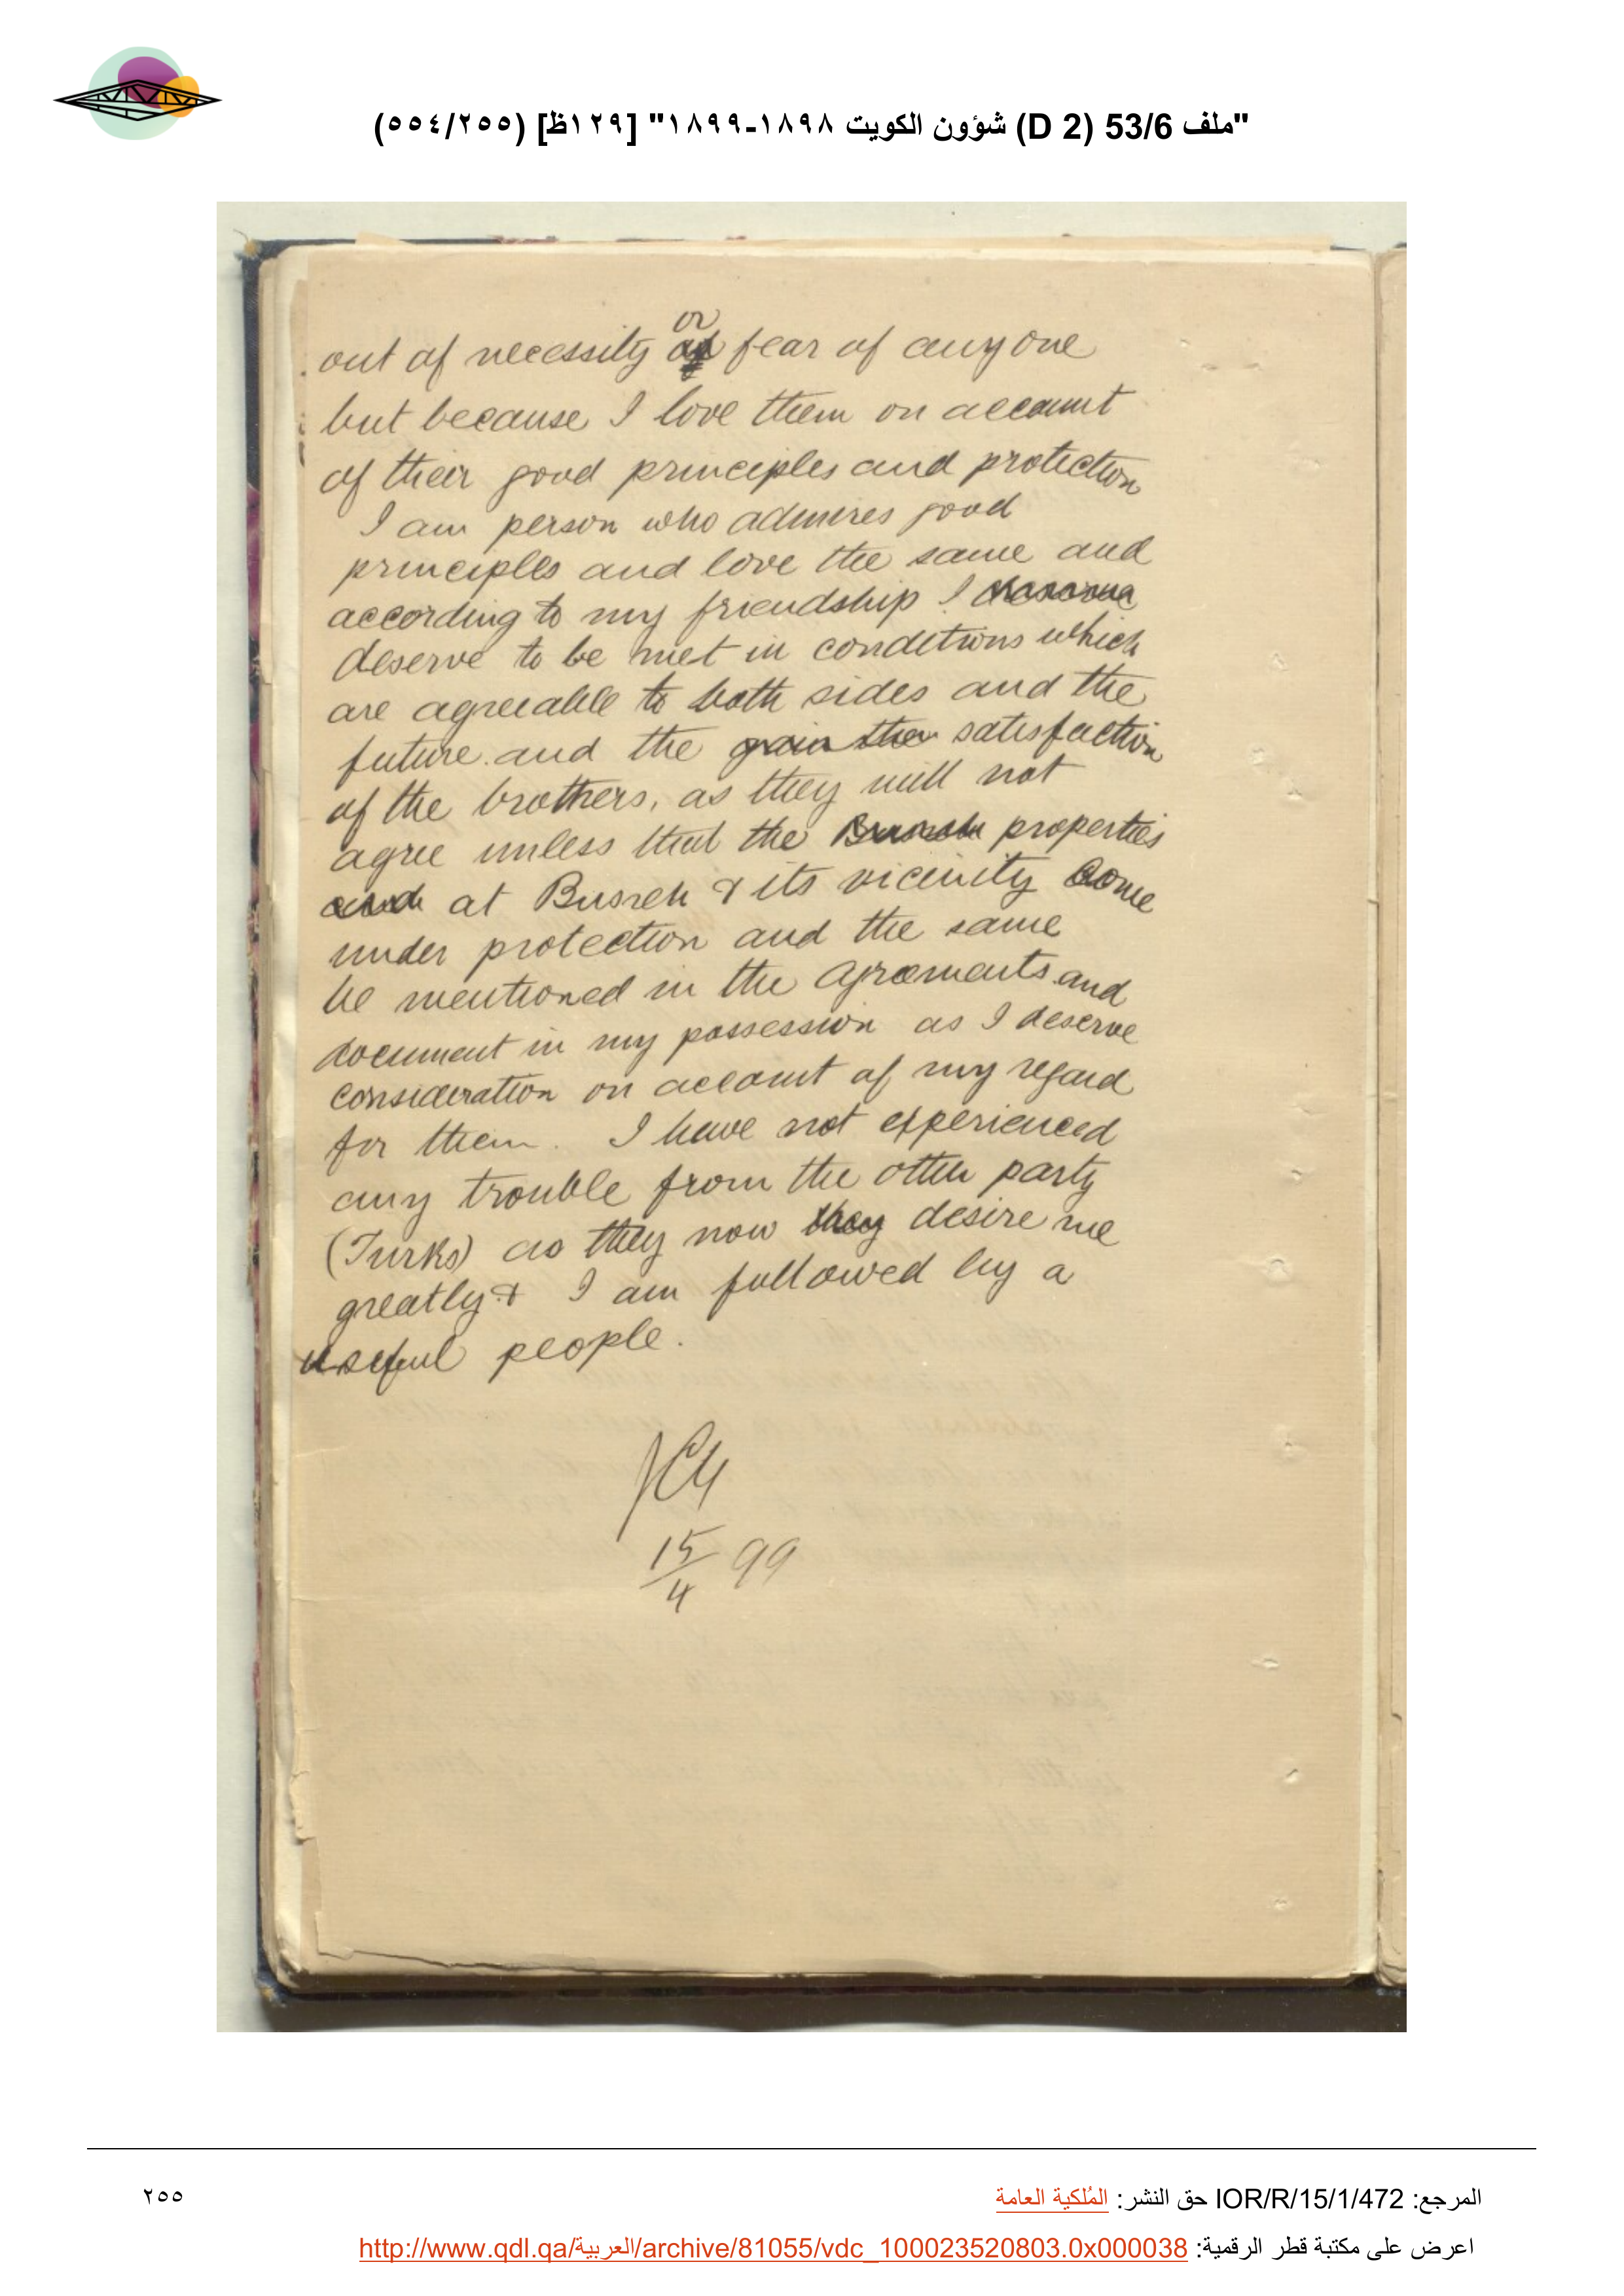 "ملف 53/6 (D 2) شؤون الكويت ١٨٩٨-١٨٩٩" [١٢٩ظ] (٢٥٥/٥٥٤)
or
out of necessity of fear of any one
but because I love them on account
of their good principles and protection
I am person who admires good
principles and love the same and
according to my friendship I
deserve to be met in conditions which
are agreeable to both sides and the
future and the gain the satisfaction
of the brothers, as they will not
agree unless that the Busreh properties
and at Busreh & its vicinity come
under protection and the same
be mentioned in the agreements and
document in my possession as I deserve
consideration on account of my regard
for them. I have not experienced
any trouble from the other party
(Turks) as they now they desire me
greatly & I am followed by a
useful people.
15/4 99
المرجع: IOR/R/15/1/472 حق النشر: المُلكية العامة
٢٥٥
اعرض على مكتبة قطر الرقمية: http://www.qdl.qa/العربية/archive/81055/vdc_100023520803.0x000038